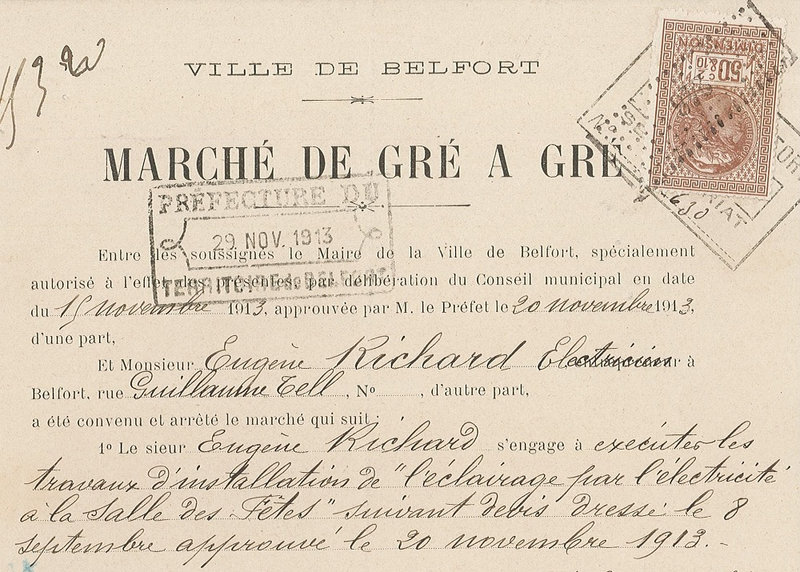 VILLE DE BELFORT
MARCHÉ DE GRÉ A GRÉ
DIMENSION
50 c
& 2/10
630
PRÉFECTURE DU
29 NOV. 1913
TERRITOIRE de BELFORT
Entre les soussignés le Maire de la Ville de Belfort, spécialement
autorisé à l'effet des présentes, par délibération du Conseil municipal en date
du 15 novembre 1913, approuvée par M. le Préfet le 20 novembre 1913,
d'une part,
Et Monsieur Eugène Richard Electricien entrepreneur à
Belfort, rue Guillaume Tell, No , d'autre part,
a été convenu et arrêté le marché qui suit :
1o Le sieur Eugène Richard s'engage à exécuter les
travaux d'installation de "l'éclairage par l'électricité
à la Salle des Fêtes" suivant devis dressé le 8
septembre approuvé le 20 novembre 1913.-